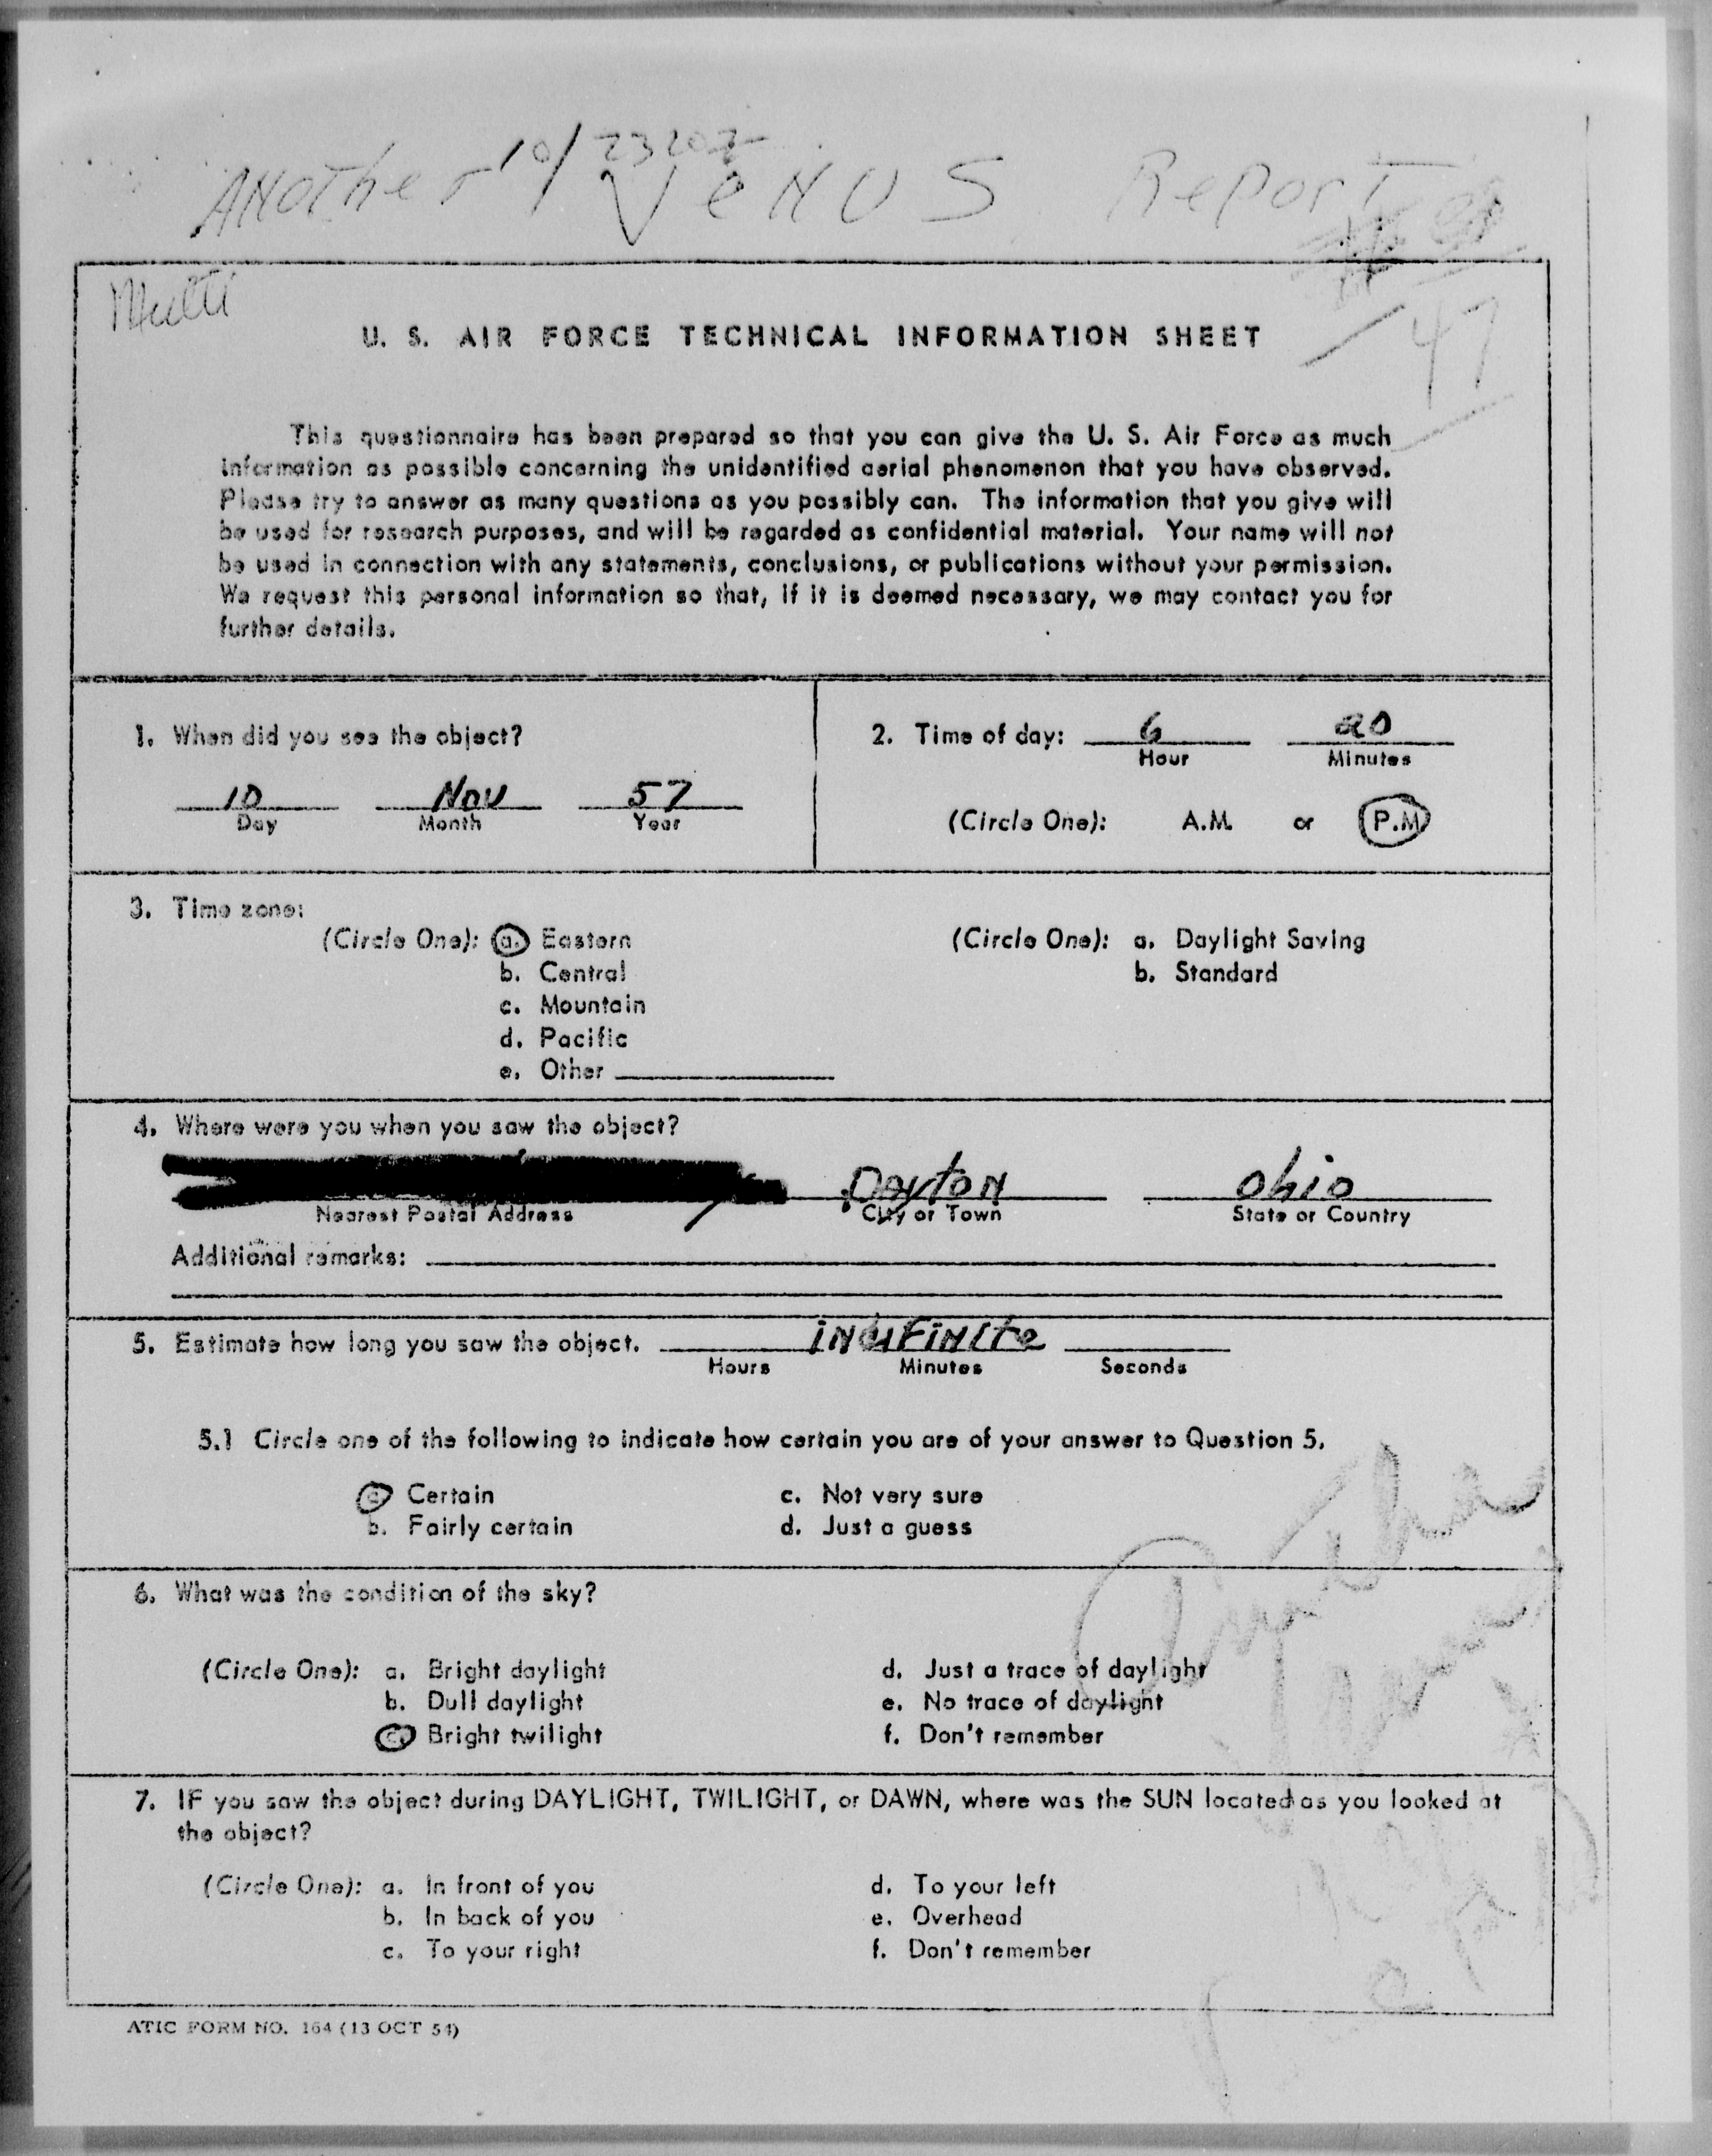 10/2320Z
Another Venus Report
Multi
47
U. S. AIR FORCE TECHNICAL INFORMATION SHEET
This questionnaire has been prepared so that you can give the U. S. Air Force as much
information as possible concerning the unidentified aerial phenomenon that you have observed.
Please try to answer as many questions as you possibly can. The information that you give will
be used for research purposes, and will be regarded as confidential material. Your name will not
be used in connection with any statements, conclusions, or publications without your permission.
We request this personal information so that, if it is deemed necessary, we may contact you for
further details.
1. When did you see the object?
10 Nov 57
Day Month Year
2. Time of day: 6 20
Hour Minutes
(Circle One): A.M. or P.M
3. Time zone:
(Circle One): a. Eastern
b. Central
c. Mountain
d. Pacific
e. Other
(Circle One): a. Daylight Saving
b. Standard
4. Where were you when you saw the object?
Dayton Ohio
Nearest Postal Address City or Town State or Country
Additional remarks:
5. Estimate how long you saw the object. indefinite
Hours Minutes Seconds
5.1 Circle one of the following to indicate how certain you are of your answer to Question 5.
a. Certain c. Not very sure
b. Fairly certain d. Just a guess
6. What was the condition of the sky?
(Circle One): a. Bright daylight d. Just a trace of daylight
b. Dull daylight e. No trace of daylight
c. Bright twilight f. Don't remember
7. IF you saw the object during DAYLIGHT, TWILIGHT, or DAWN, where was the SUN located as you looked at
the object?
(Circle One): a. In front of you d. To your left
b. In back of you e. Overhead
c. To your right f. Don't remember
ATIC FORM NO. 164 (13 OCT 54)